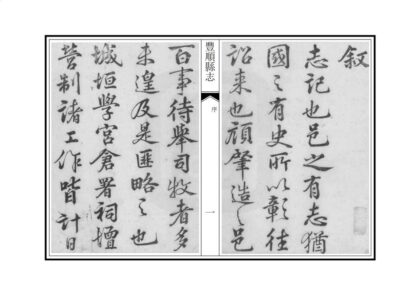 叙
志記也邑之有志猶
國之有史所以彰往
詔来也顧肇造之邑
豐順縣志
序
一
百事待舉司牧者多
未遑及是匪略之也
城垣學宮倉署祠壇
营制諸工作皆計日